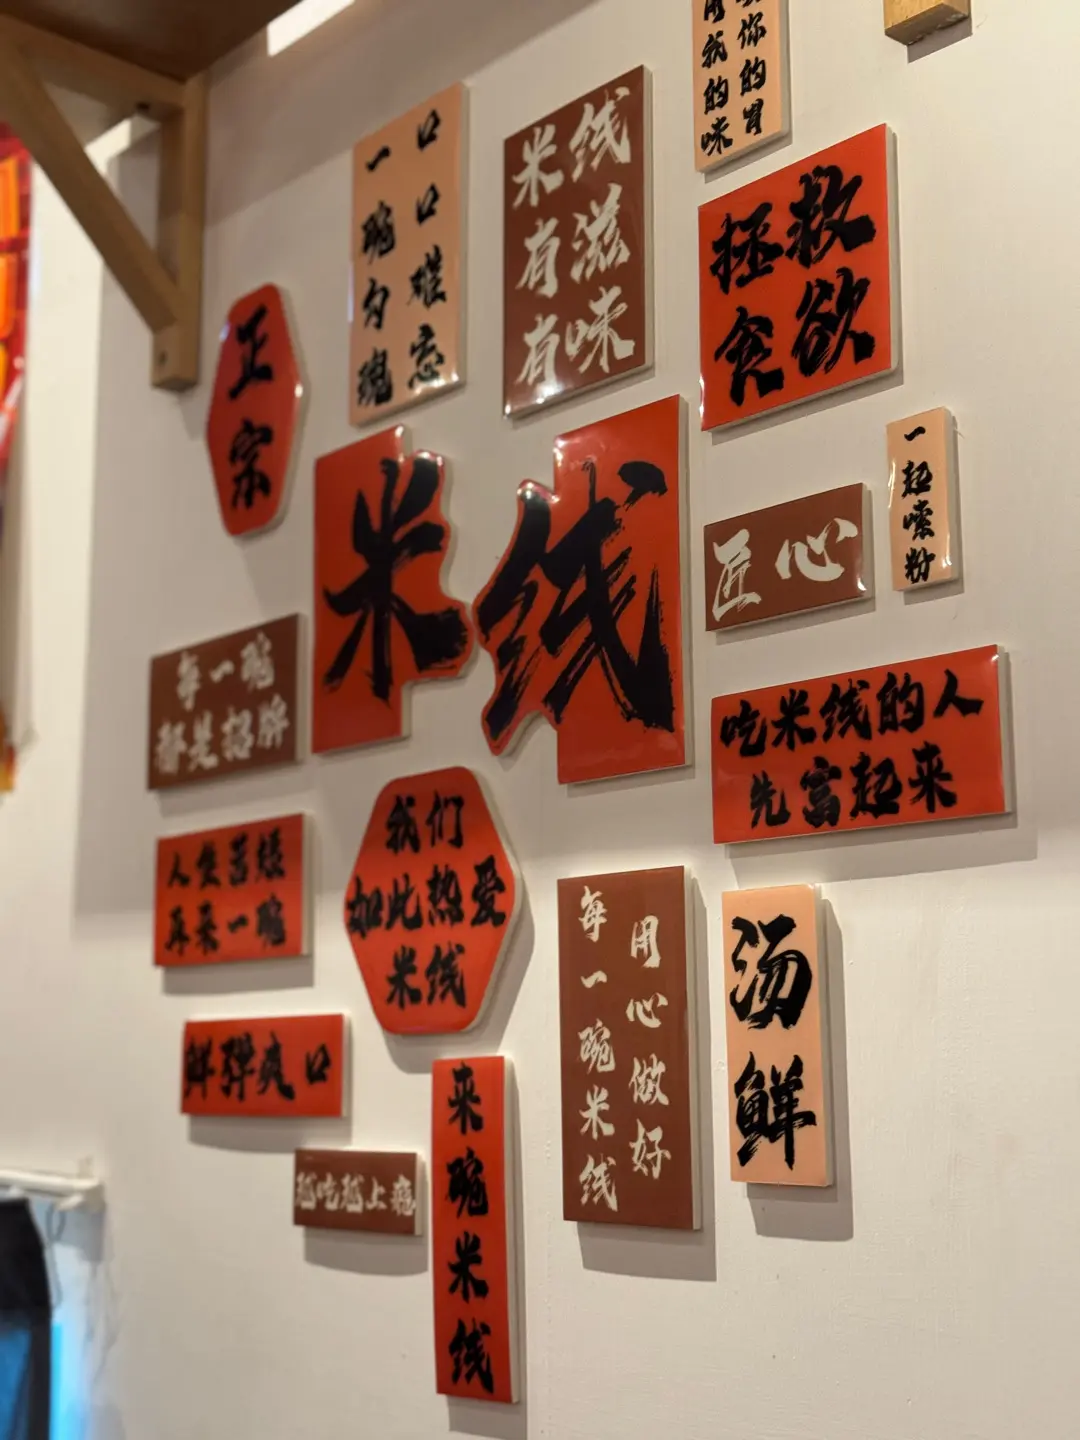 用我的味
你的胃
一碗勾魂
口口难忘
米线
有滋
有味
拯救
食欲
正宗
米线
匠心
一起嗦粉
每一碗
都是招牌
吃米线的人
先富起来
人生苦短
再来一碗
我们
如此热爱
米线
每一碗米线
用心做好
汤鲜
鲜弹爽口
来碗米线
越吃越上瘾